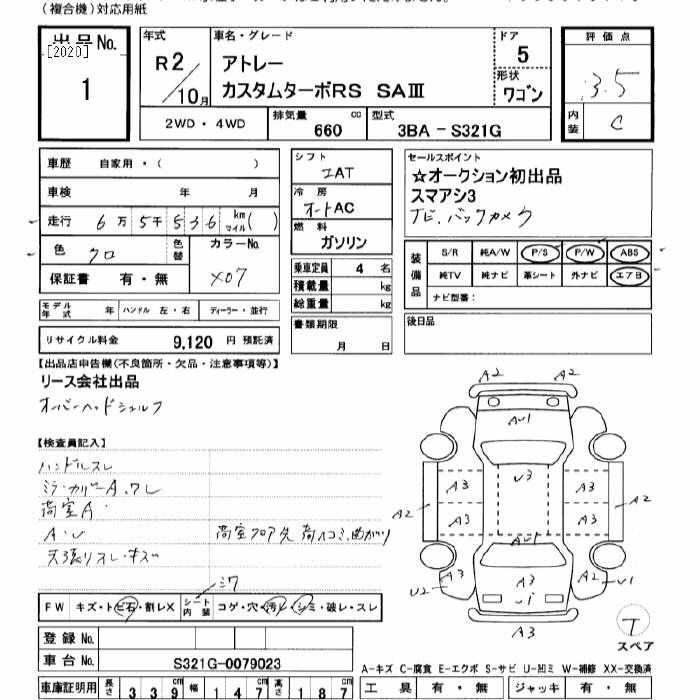 (複合機)対応用紙
出品No.
[2020]
1
年式
R2/10月
車名・グレード
アトレー
カスタムターボRS SAⅢ
ドア
5
形状
ワゴン
評価点
3.5
内装
C
2WD・4WD
排気量
660 cc
型式
3BA-S321G
車歴 自家用・( )
車検 年 月
走行 6万5千536 km マイル( )
色 クロ
色替
カラーNo.
X07
保証書 有・無
モデル年式 年
ハンドル 左・右
ディーラー・並行
リサイクル料金 9,120 円 預託済
シフト
IAT
冷房
オートAC
燃料
ガソリン
乗車定員 4 名
積載量 kg
総重量 kg
書類期限
月 日
セールスポイント
☆オークション初出品
スマアシ3
ナビ.バックカメラ
装備品
S/R 純A/W P/S P/W ABS
純TV 純ナビ 革シート 外ナビ エアB
ナビ型番:
後日品
【出品店申告欄(不良箇所・欠品・注意事項等)】
リース会社出品
オーバーヘッドシェルフ
【検査員記入】
ハンドルスレ
ミラーカバーA.ワレ
荷室A
A・U
荷室フロア先 荷凹コミ.曲がり
天張リスレ・キズ
シワ
FW キズ・トビ石・割レX
シート内装 コゲ・穴・汚レ・シミ・破レ・スレ
登録No.
車台No. S321G-0079023
車庫証明用 長さ 339 幅 147 高さ 187
A2
A2
AU1
U3
A3
A3
A3
A3
A2
A2
AU1
A3
U2
A3
U1
A2
U1
A3
T
スペア
A-キズ C-腐食 E-エクボ S-サビ U-凹ミ W-補修 XX-交換済
工具 有・無 ジャッキ 有・無